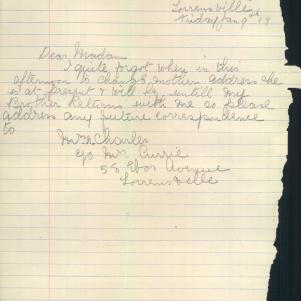 Torrensville
Friday Jan 9th 19
Dear Madam
I quite forgot when in this
afternoon to change mothers address she
is at present & will be untill my
Brother Returns with me so please
address any future correspondence
to
Mrs M Charles
C/o Mrs Currie
58 Ebor Avenue
Torrensville